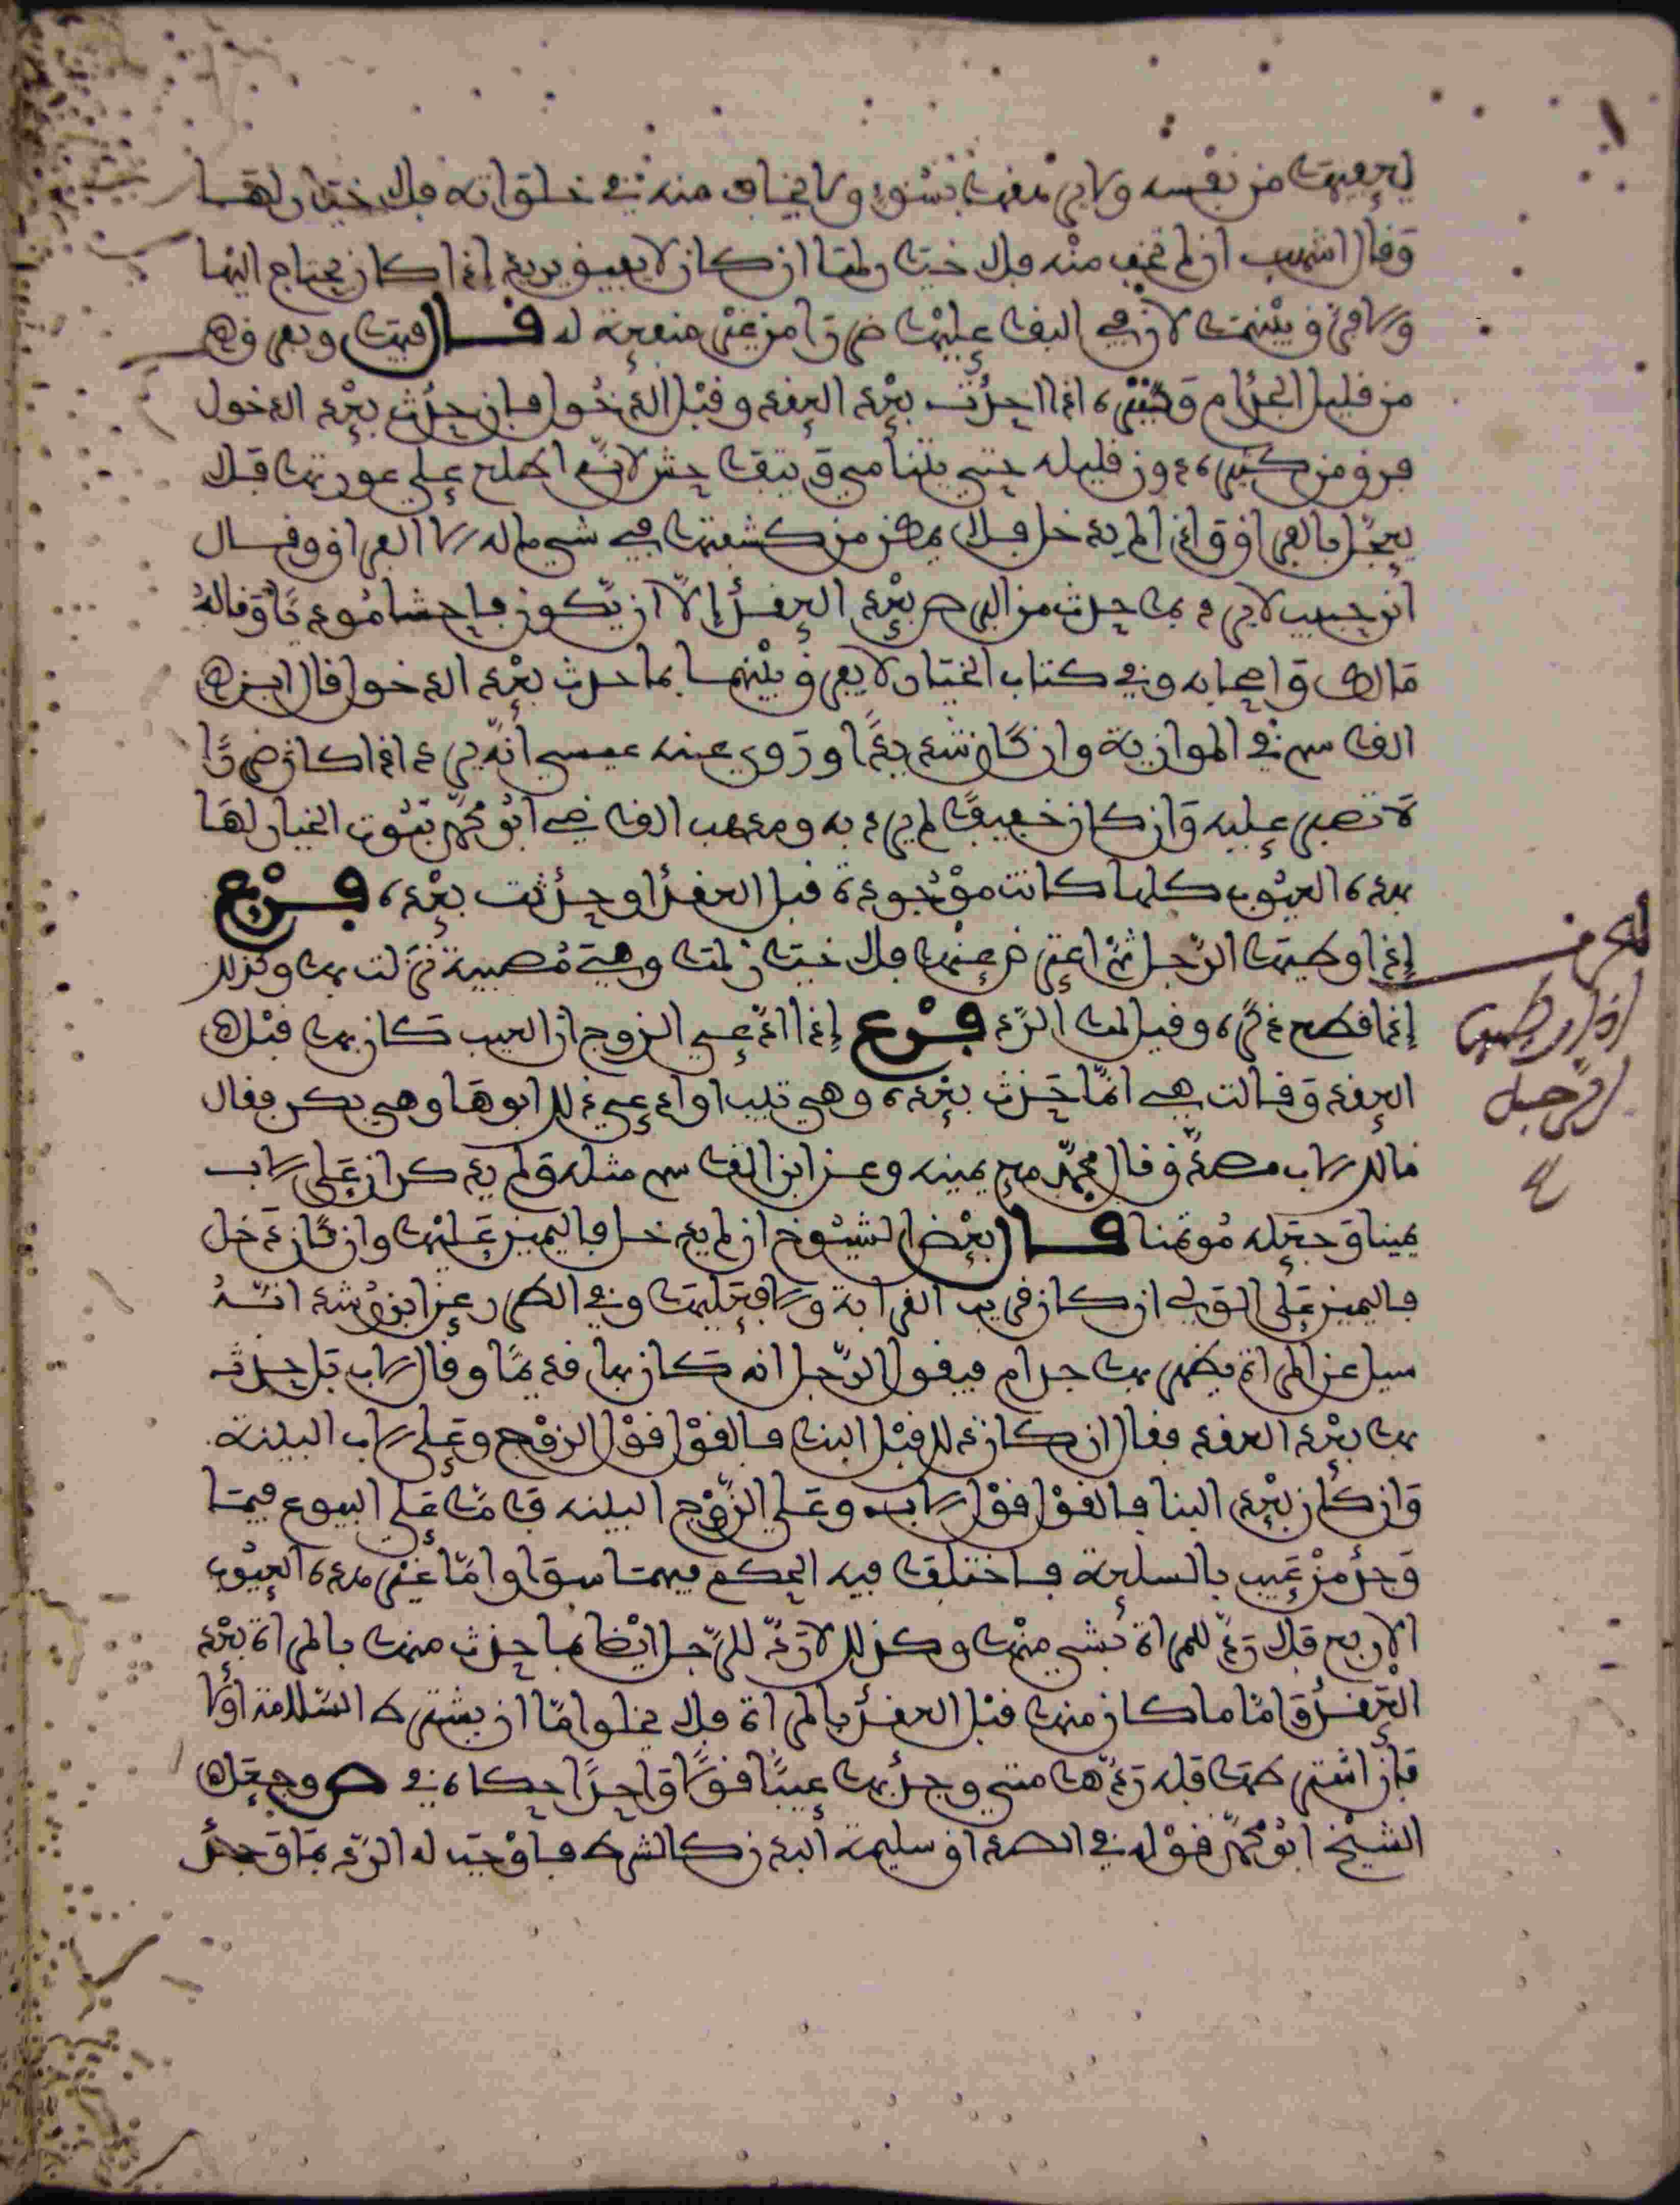 ليعفيها من نفسه ولا يرهقها بسوء ولا يخاف منه في خلواته فلا خيار لها
وقال اشهب ان لم تخف منه فلا خيار لها ان كان لا يفيق يريد اذا كان يحتاج اليها
والا فرق بينهما لان في البقا عليها ضررا من غير منفعة له قال فيها ويفرق
من قليل الجذام وكثيره اذا حدث بعد العقد وقبل الدخول فان حدث بعد الدخول
فرق من كثيره دون قليله حتى يتنامى ويتفاحش لانه اطلع على عورتها فلا
يعجل بالفراق واذا لم يدخل فلا يمكن من كشفها في شي ماله الا الفراق وقال
ابن حبيب لا يرد بما حدث من البرص بعد العقد إلا ان يكون فاحشا موذيا وقاله
مالك واصحابه وفي كتاب الخيار لا يفرق بينهما بما حدث بعد الدخول قال ابن
القاسم في الموازية وان كان شديدا وروى عنه عيسى انه يرد اذا كان ضررا
لا تصبر عليه وان كان خفيفا لم يرد به ومذهب القاضي ابو محمد ثبوت الخيار لها
بهذه العيوب كلها كانت موجودة قبل العقد او حدثت بعده فرع
إذا وطيها الرجل ثم اعترض عنها فلا خيار لها وهي مصيبة نزلت بها وكذلك
إذا قطع ذكره وقيل لها الرد فرع إذا ادعى الزوج ان العيب كان بها قبل
العقد وقالت هي انما حدث بعده وهي ثيب او ادعى ذلك ابوها وهي بكر فقال
مالك الاب مصدق وقال محمد مع يمينه وعن ابن القاسم مثله ولم يذكر ان على الاب
يمينا وجعله موتمنا قال بعض الشيوخ ان لم يدخل فاليمين عليها وان كان دخل
فاليمين على الولي ان كان قريب القرابة والا فعليها وفي الطرر عن ابن رشد انه
سيل عن المراة يظهر بها جذام فيقول الرجل انه كان بها قديما وقال الاب بل حدث
بها بعد العقد فقال ان كان ذلك قبل البنا فالقول قول الزوج وعلى الاب البينة
وان كان بعد البنا فالقول قول الاب وعلى الزوج البينه قاسا على البيوع فيما
وجد من عيب بالسلعة فاختلف فيه الحكم فيهما سوا واما غير هذه العيوب
الاربع فلا رد للمراة بشي منها وكذلك لا رد للرجل ايضا بما حدث منها بالمراة بعد
العقد واما ما كان منها قبل العقد بالمراة فلا يخلو اما ان يشترط السلامة اولا
فان اشترطها فله ردها متى وجد بها عيبا قولا واحدا حكاه في ص وجعل
الشيخ ابو محمد قوله في الصداق سليمة البدن كالشرط فاوجب له الرد بما وجد
اذا وطيها
الرجل